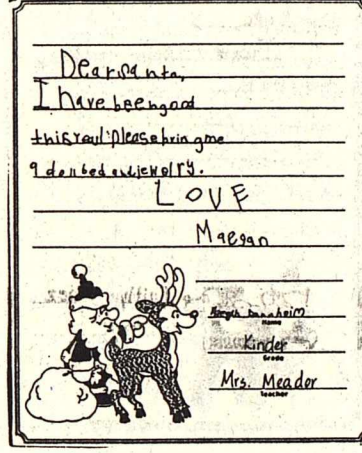 Dear Santa,
I have been good
this year! Please bring me
a doll bed and jewelry.
LOVE
Maegan
Dannheim
Name
Kinder
Grade
Mrs. Meador
Teacher